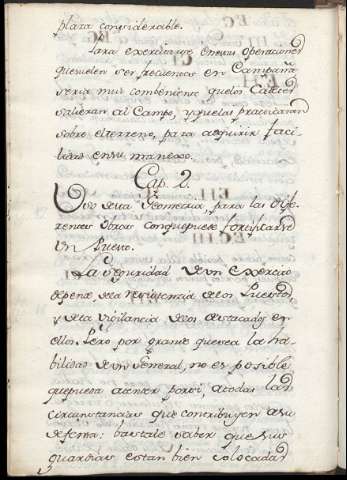 plaza considerable.
Para exercitarse en estas operaciones
que suelen ser frecuentes en Campaña
seria mui combeniente que los Cadetes
salieran al Campo, y que las practicaran
sobre el terreno, para adquirir faci
lidad en su manexo.
Cap. 2.
Uso de la Geometria, para las Dife
rentes Obras con que puede fortificarse
Un Puesto.
La Seguridad de un Exercito
depende de la resistencia de los Puestos
y de la Vigilancia de los destacados en
ellos. Pero por grande que sea la ha-
bilidad de un General, no es posible
que pueda atender por si, a todas las
circunstancias que contribuyen a su
defensa: bastale saber que sus
guardias estan bien colocadas